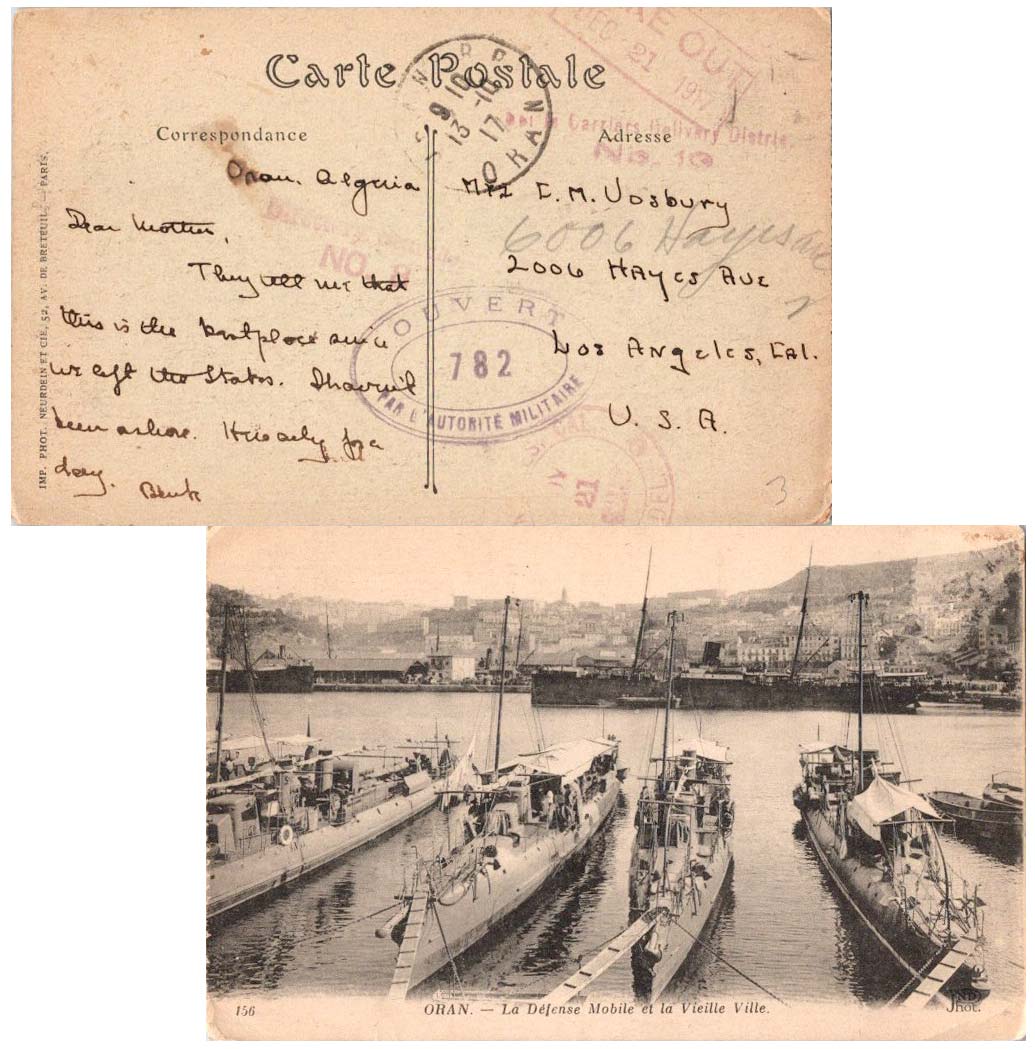 Carte Postale
Correspondance
Adresse
IMP. PHOT. NEURDEIN ET CIE, 52, AV. DE BRETEUIL. — PARIS.
9 10
13 -10
17
ORAN
OUT
DEC 21 191
Carriers Delivery Distric.
No. 19
NO. 8
Oran. Algeria
Dear Mother,
They tell me that
this is the best place since
we left the States. I haven't
been ashore. Here only for a
day. 
E. M. Vosbury
6006 Hayes
2006 Hayes Ave
Los Angeles, Cal.
U. S. A.
OUVERT
782
PAR L'AUTORITÉ MILITAIRE
CAL.
DEL
21
3
156
ORAN. — La Défense Mobile et la Vieille Ville.
ND Phot.